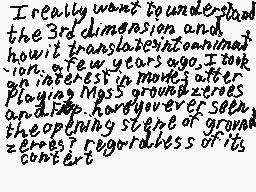 I really want to understand
the 3rd dimension and
how it translates into animat
-ion. a few years ago, I took
an interest in movies after
playing MGS5 ground zeroes
and TPP. have you ever seen
the opening scene of ground
zeroes? regardless of its
context